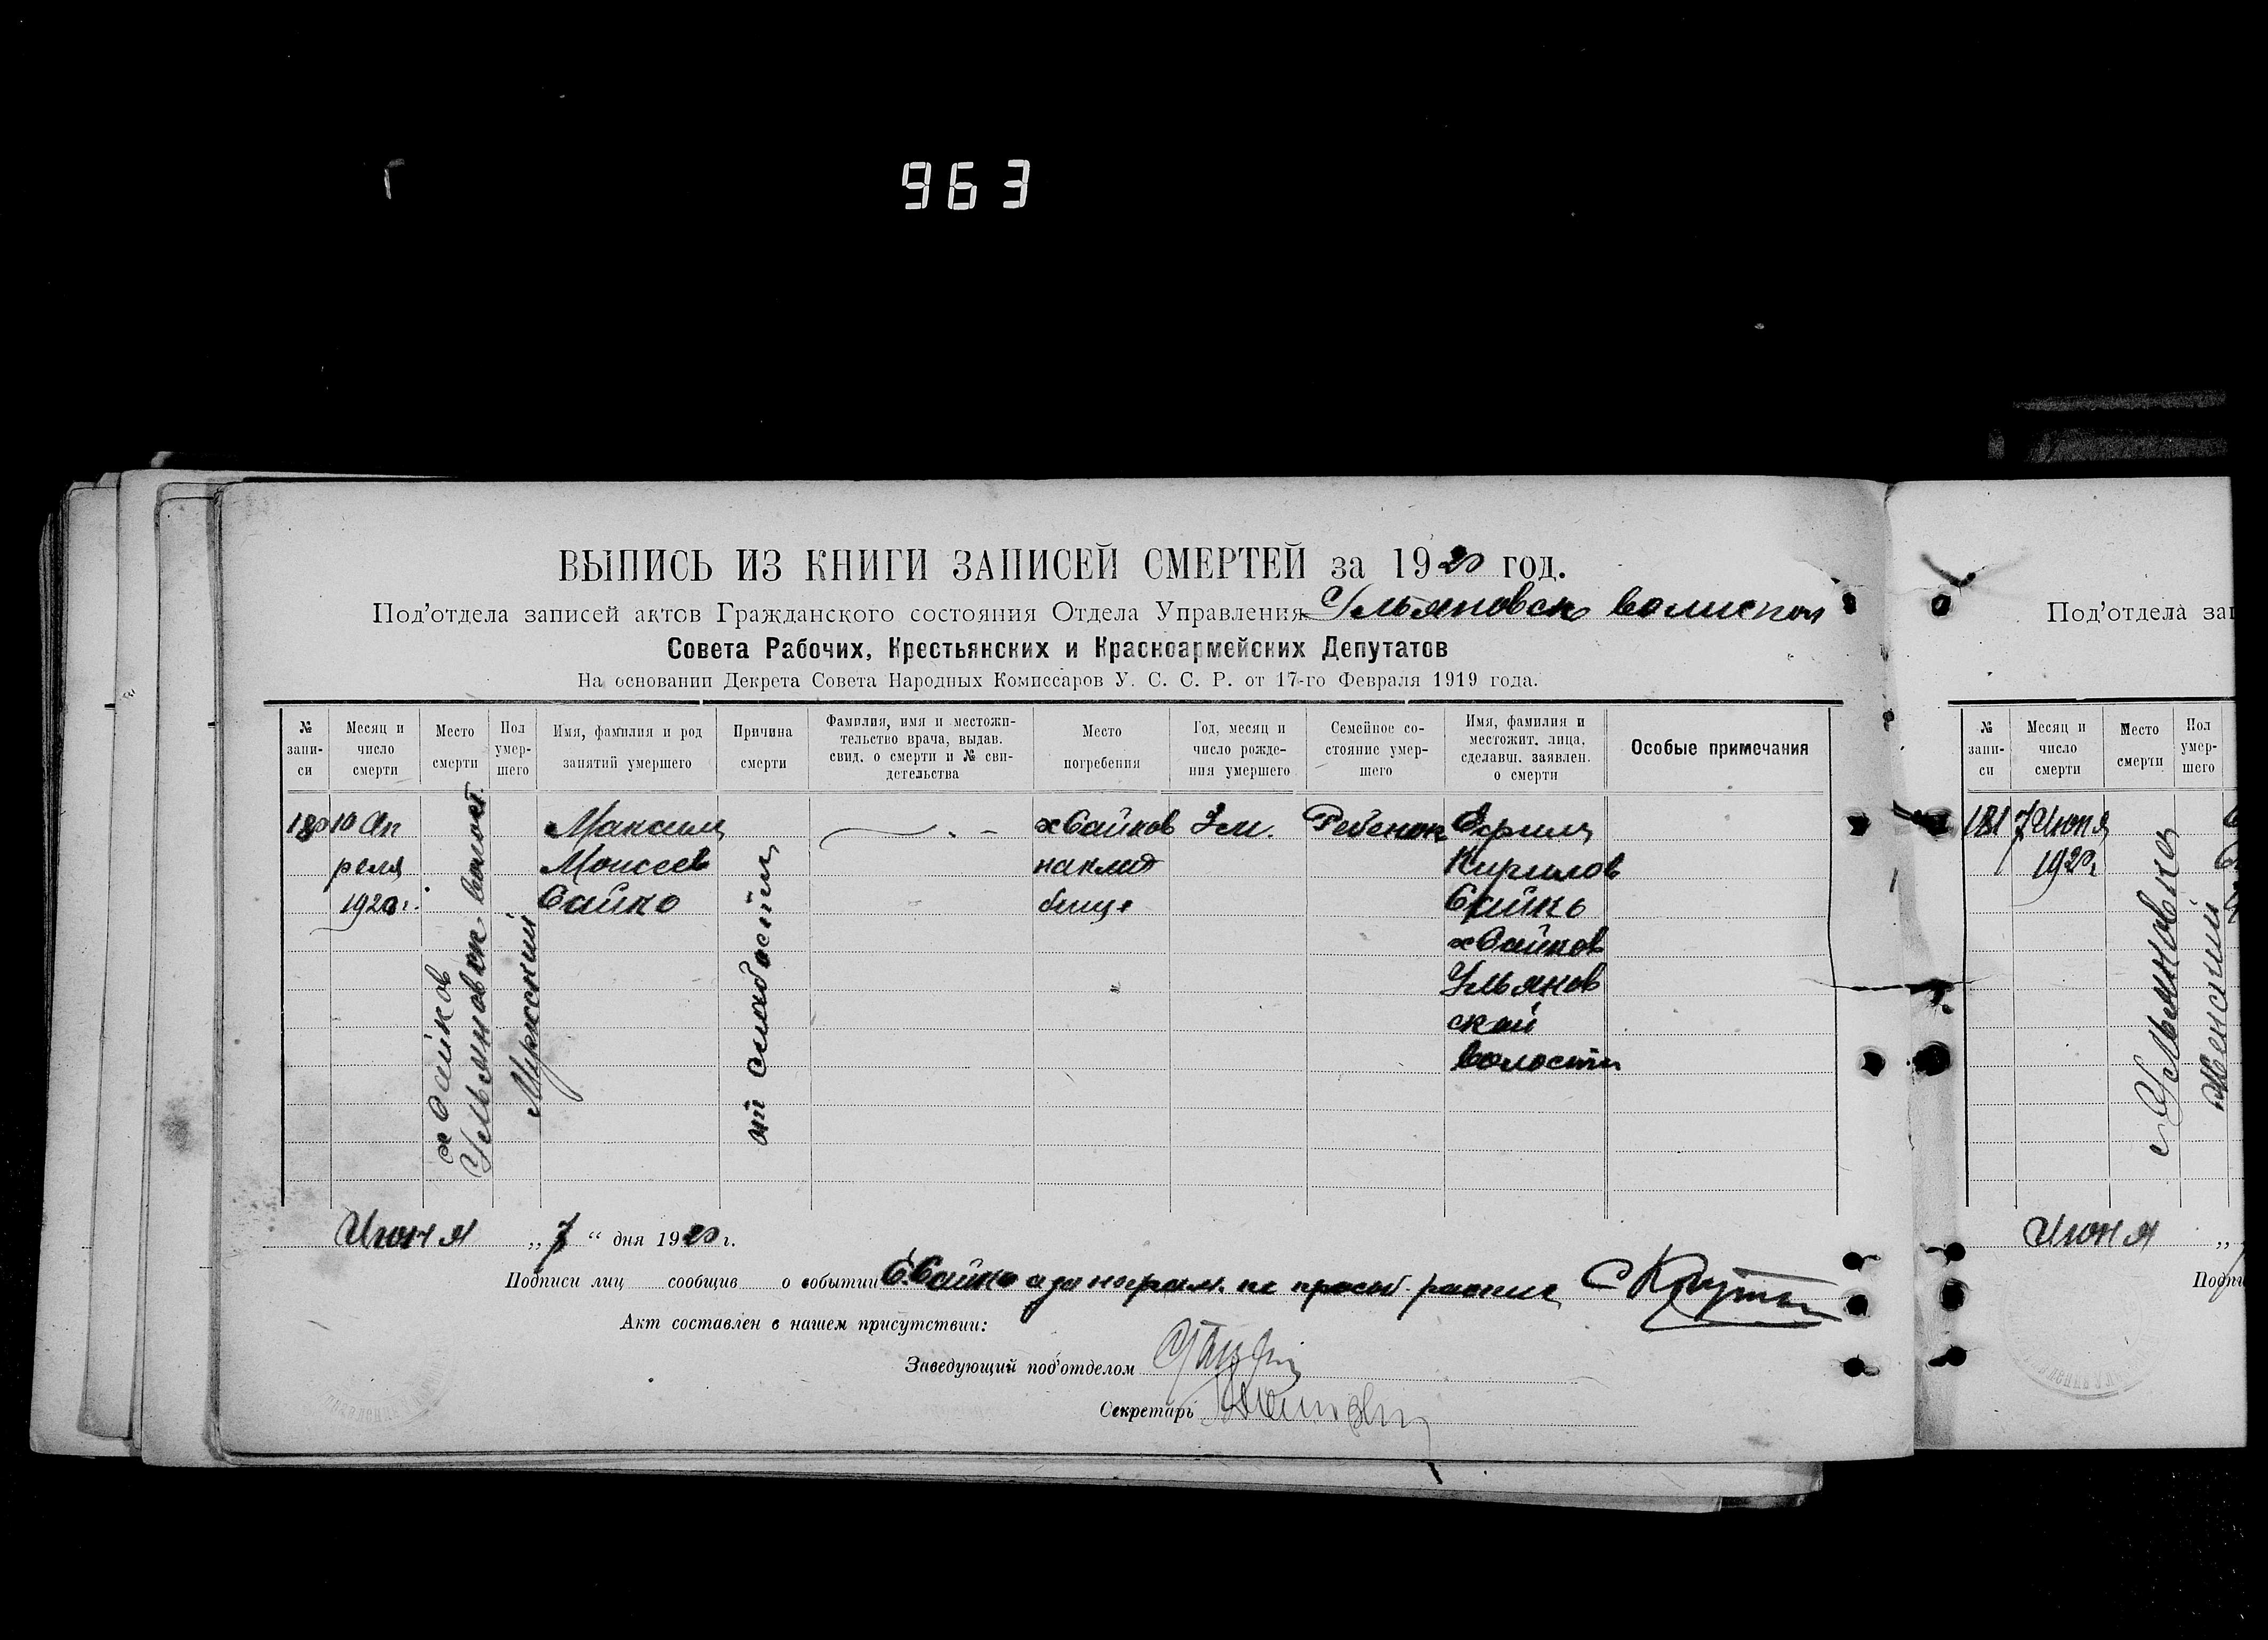 963
ВЫПИСЬ ИЗ КНИГИ ЗАПИСЕЙ СМЕРТЕЙ за 1920 год.
Под'отдела записей актов Гражданского состояния Отдела Управления Ульяновск волиспол
Совета Рабочих, Крестьянских и Красноармейских Депутатов
На основании Декрета Совета Народных Комиссаров У. С. С. Р. от 17-го Февраля 1919 года.
№ запи-си
Месяц и число смерти
Место смерти
Пол умер-шего
Имя, фамилия и род занятий умершего
Причина смерти
Фамилия, имя и местожи-тельство врача, выдав. свид. о смерти и № сви-детельства
Место погребения
Год, месяц и число рожде-ния умершего
Семейное со-стояние умер-шего
Имя, фамилия и местожит. лица, сделавш. заявлен. о смерти
Особые примечания
180
10 Ап
реля
1920 г.
х Сайков
Ульяновск волост.
Мужский
Максим
Моисеев
Сайко
от слабости
х Сайков
наклад
бище
3 м.
Ребенок
Ефим
Кирилов
Сайко
х Сайков
Ульянов
ской
волости
Июня „ 7 “ дня 1920 г.
Подписи лиц сообщив о событии Е. Сайко а за неграм. по прозьб.
Акт составлен в нашем присутствии:
Заведующий под'отделом
Секретарь
Под'отдела зап
№ запи-си
Месяц и число смерти
Место смерти
Пол умер-шего
181
7 Июня
1920 г.
Ульяновка
Женский
Июня „
Подпи